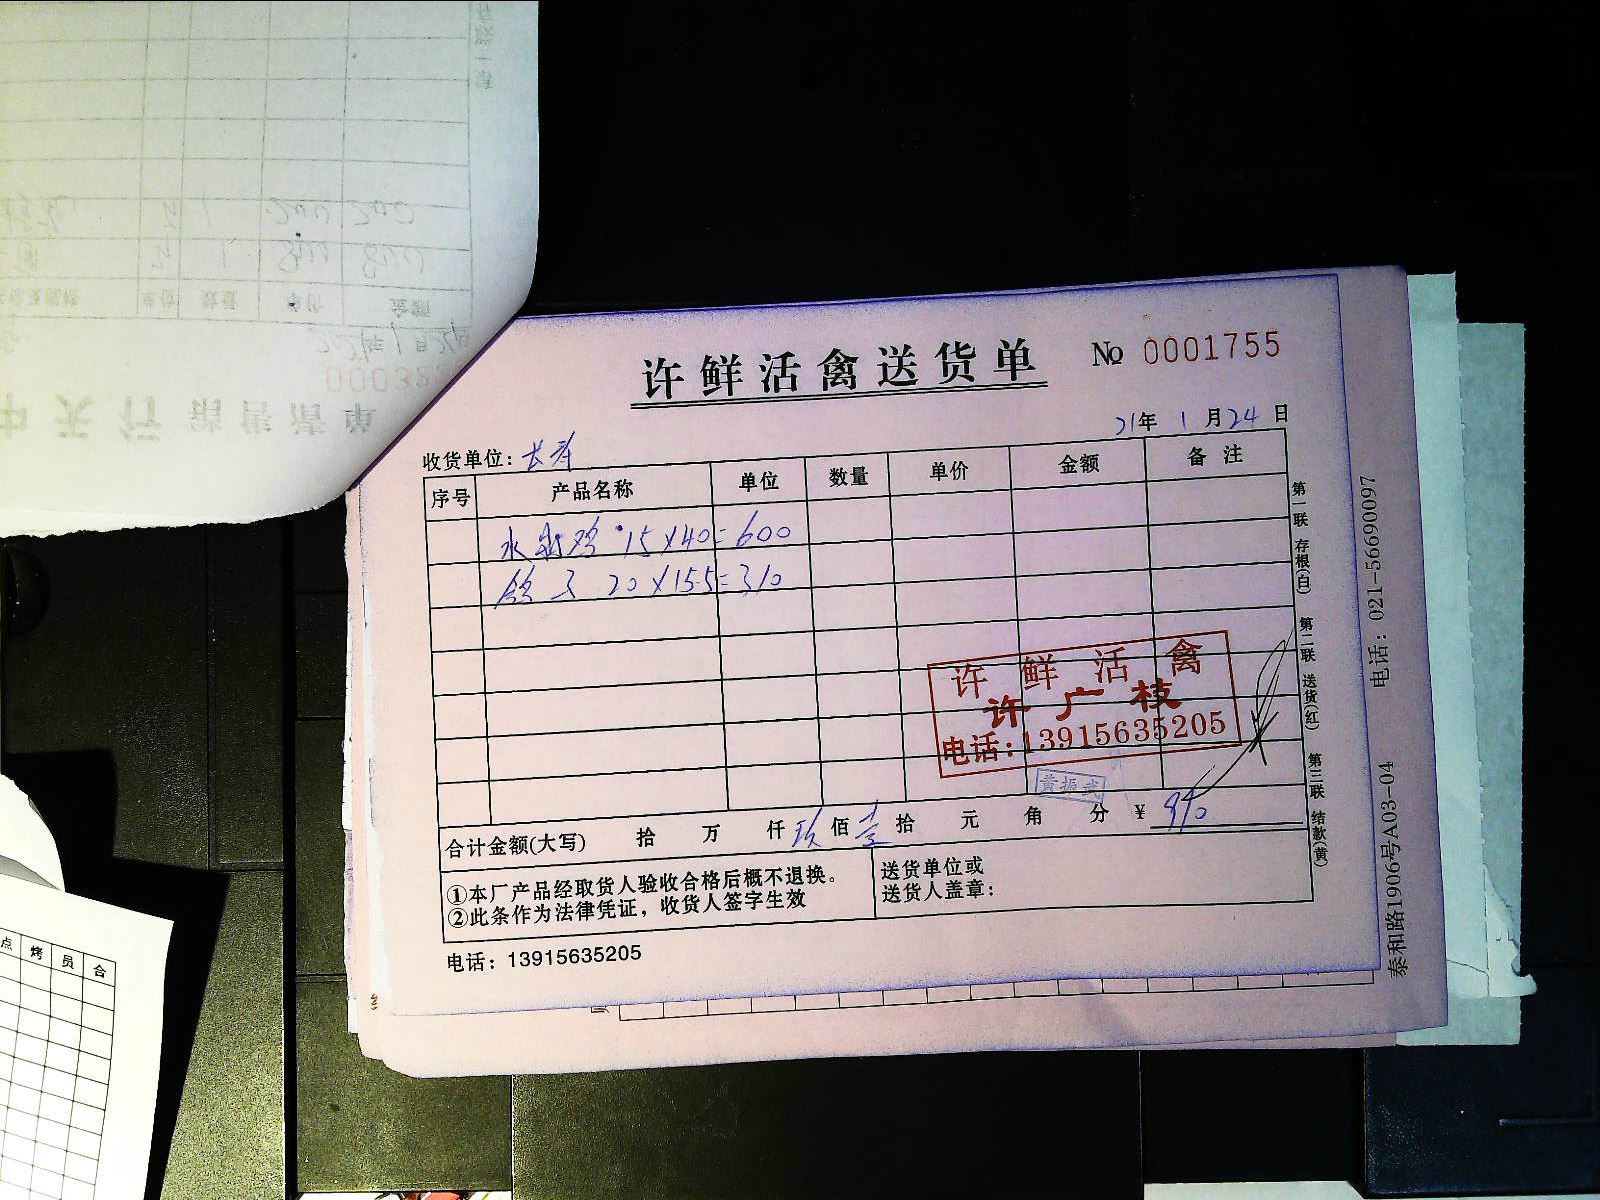 许鲜活禽送货单
No 0001755
21年 1月24日
收货单位：长寿
序号 产品名称 单位 数量 单价 金额 备注
15×40=600
鸽子 20×15.5=310
许鲜活禽
许广枝
电话：13915635205
黄振武
合计金额(大写) 拾 万 仟 玖佰 壹拾 元 角 分 ¥ 910
①本厂产品经取货人验收合格后概不退换。
②此条作为法律凭证，收货人签字生效
送货单位或
送货人盖章：
电话：13915635205
第一联 存根(白) 第二联 送货(红) 第三联 结款(黄)
泰和路1906号A03-04 电话：021-56690097
中天行销售清单
单位 数量 单价 金额
点 烤 员 合